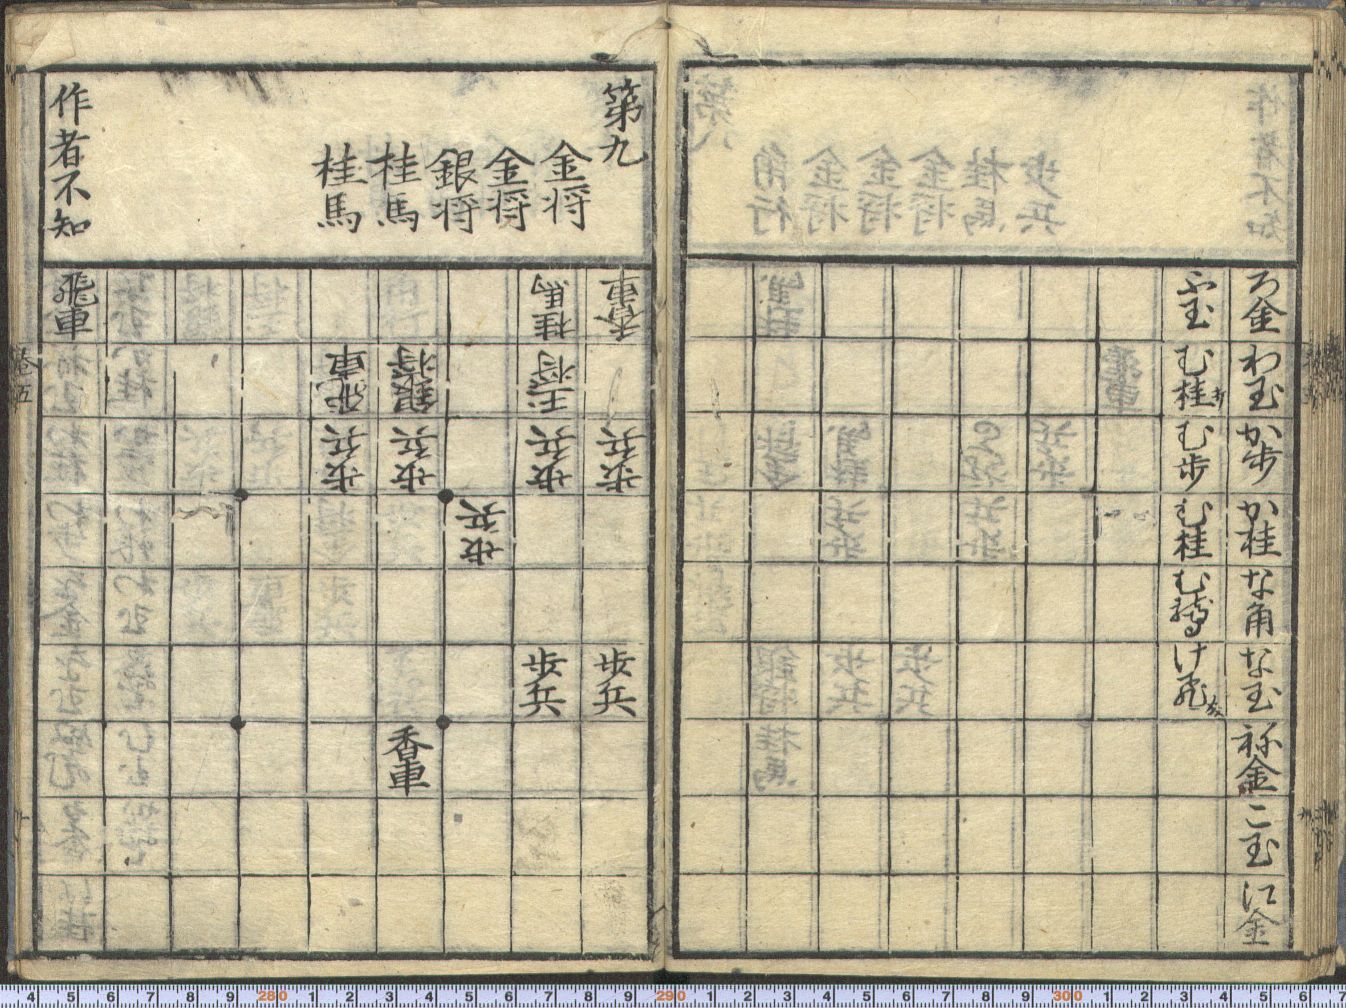 ろ金
わ玉
か歩
か桂
な角
な玉
祢金
こ玉
江金
ふ玉
む桂
む歩
む桂
け飛
第九
金将
金将
銀将
桂馬
桂馬
作者不知
香車
歩兵
歩兵
桂馬
玉将
歩兵
歩兵
歩兵
銀将
歩兵
香車
飛車
歩兵
飛車
巻五
280
290
300